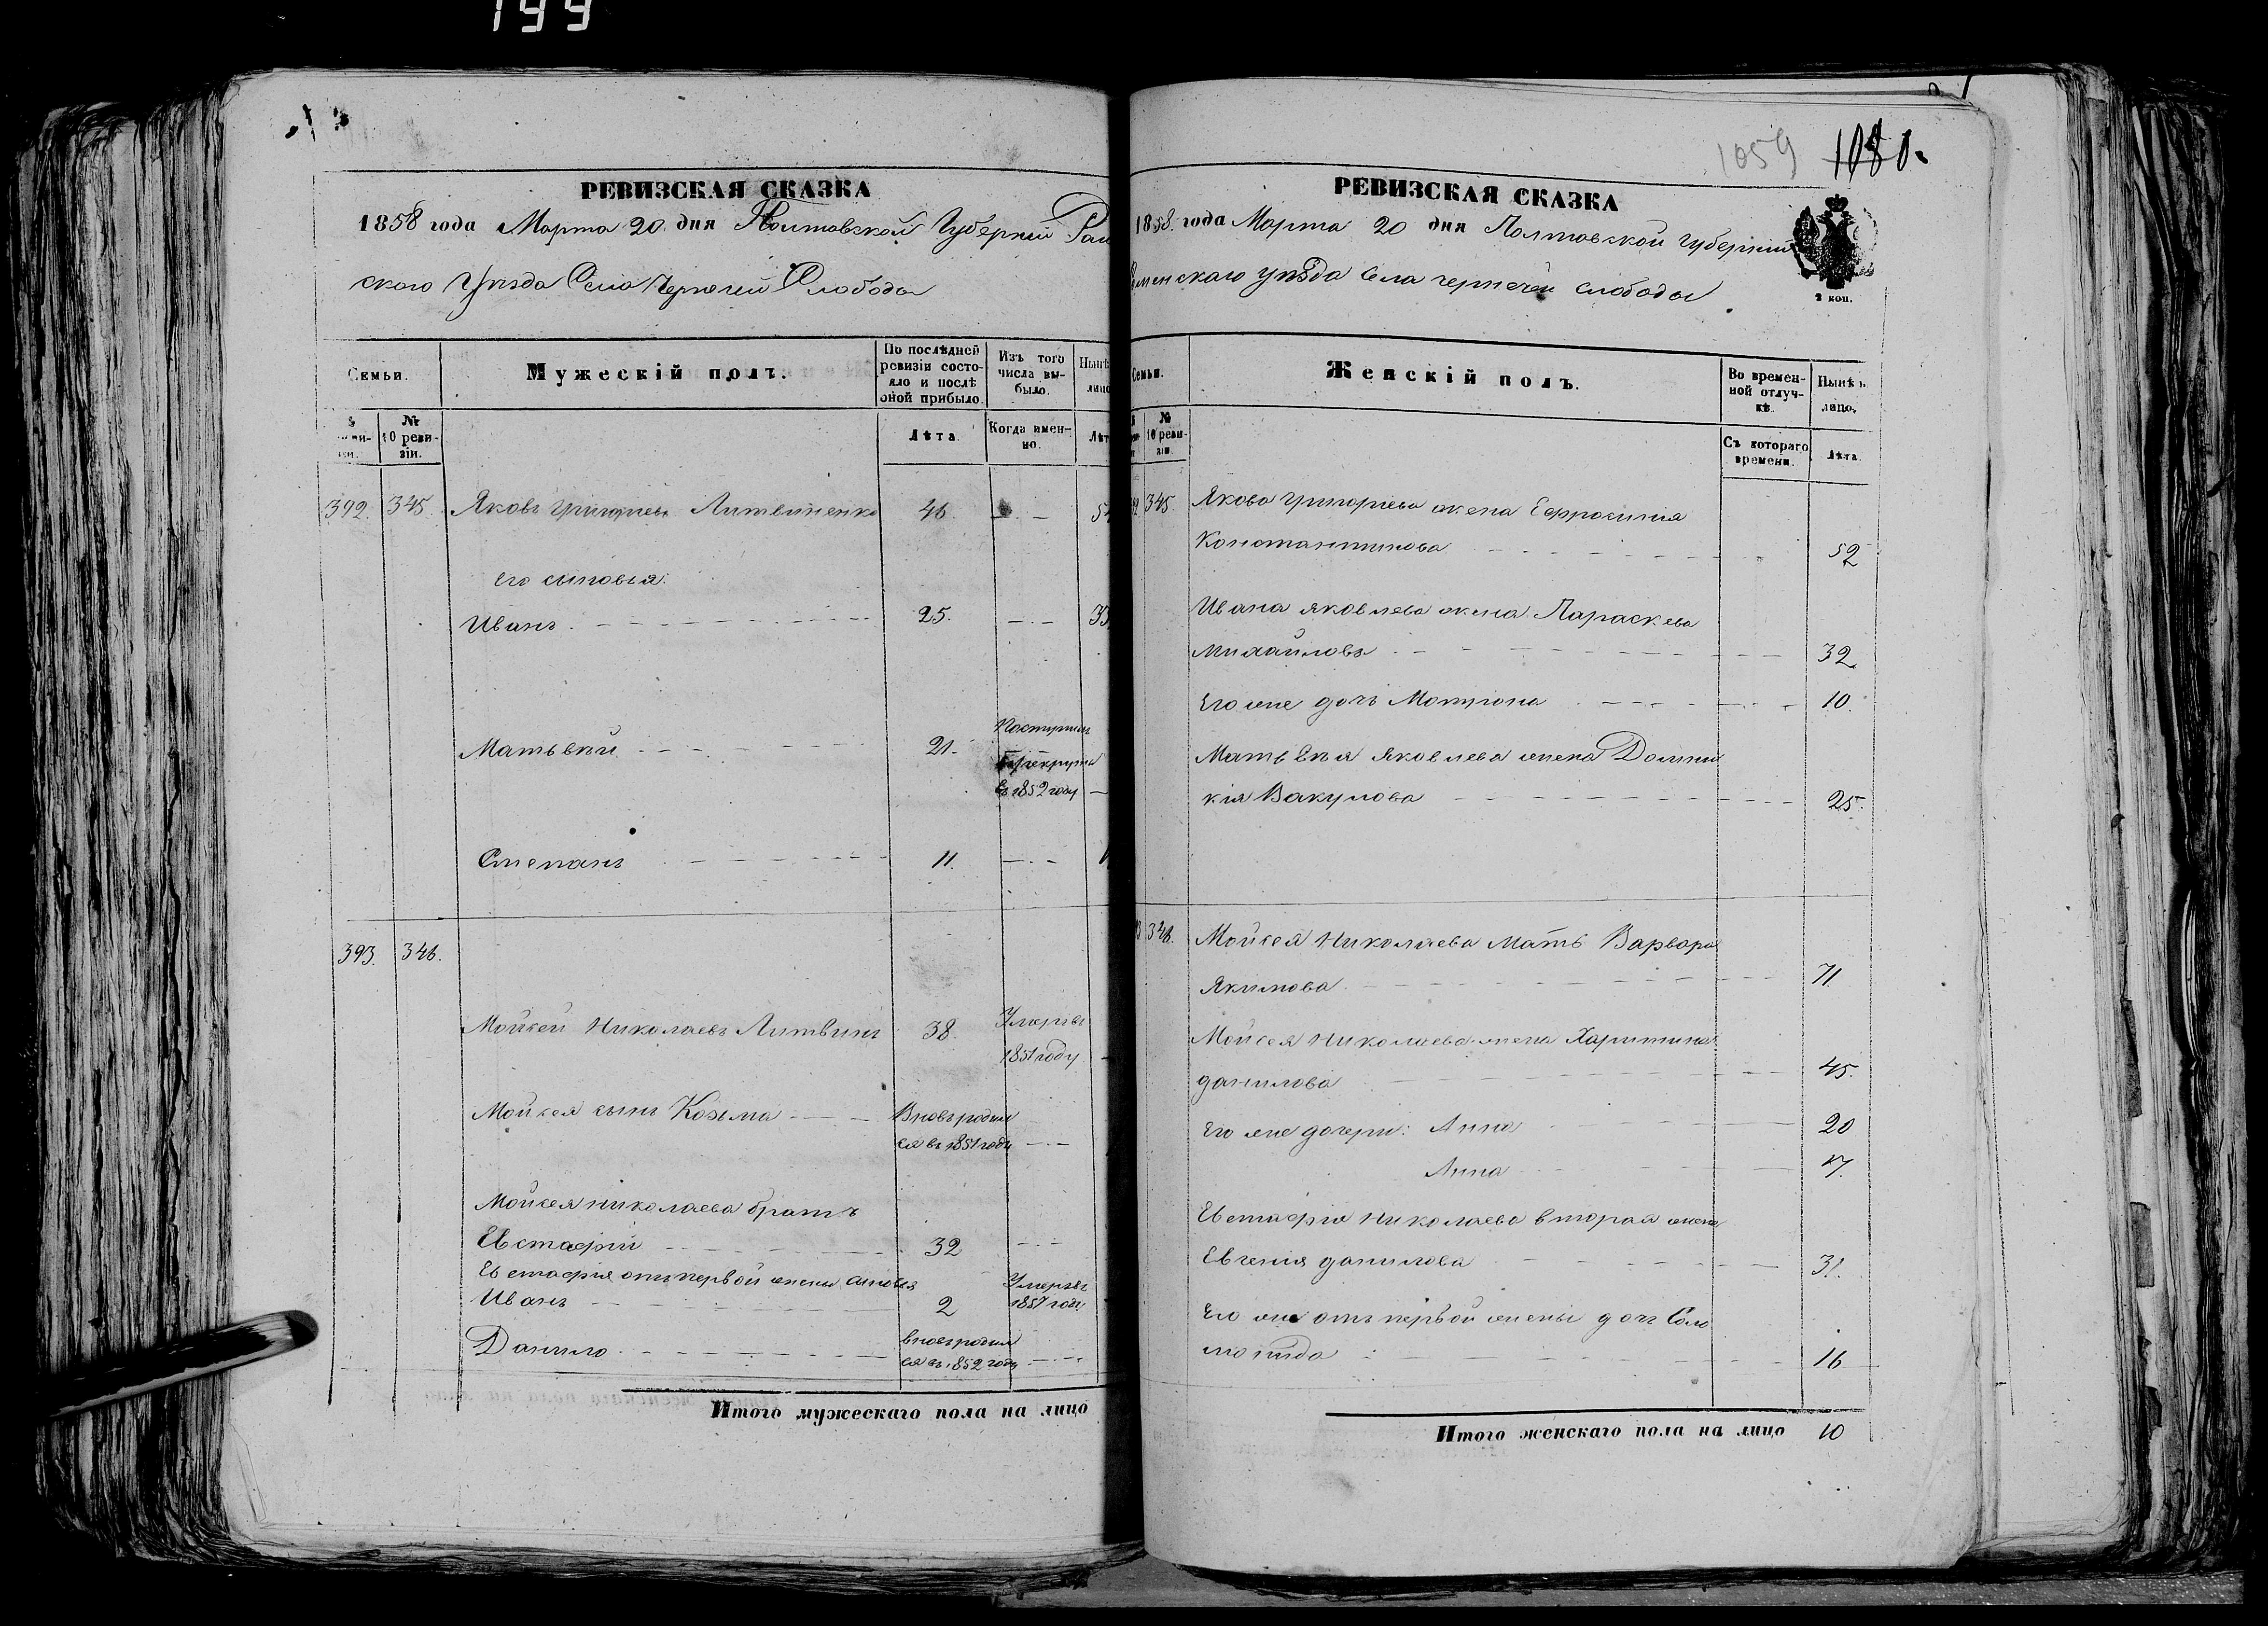 199
РЕВИЗСКАЯ СКАЗКА
1858 года Марта 20 дня Полтавской Губерніи Ром
скаго Уѣзда Села Чернечей Слободы
Семьи.
Мужескій полъ.
По послѣдней ревизіи состо-
яло и послѣ
оной прибыло.
Изъ того
числа вы-
было.
Нынѣ
лицо
№
10 реви-
зіи.
Лѣта.
Когда имен-
но.
Лѣт
392. 345. Яковъ Григорьевъ Литвиненко 46. — 54
Его сыновья:
Иванъ 25. — 33
Матьвѣй 21.
Поступилъ
въ рекруты
въ 1852 году —
Степанъ 11. —
393. 346.
Мойсей Николаевъ Литвинъ 38. Умеръ въ
1851 году
Мойсея сынъ Козьма Вновь родил
ся въ 1851 году —
Мойсея Николаева братъ
Евстафій 32 —
Евстафія отъ первой жены сыновья
Иванъ 2 Умеръ въ
1857 году
Данило вновь родил
ся въ 1852 году —
Итого мужескаго пола на лицо
1059 1080.
РЕВИЗСКАЯ СКАЗКА
1858. года Марта 20 дня Полтавской губерніи
менскаго уѣзда села чернечей слободы
2 коп.
Семьи.
Женскій полъ.
Во времен-
ной отлуч-
кѣ.
Нынѣ н
лицо.
№
10 реви-
зіи.
Съ котораго
времени.
Лѣта.
345. Якова Григорьева жена Ефросинія
Константинова 52
Ивана яковлева жена Параскева
михайлова 32.
Его же дочь Мотрона 10.
Матьвѣя Яковлева жена Домни
кія Вакулова 25.
346. Мойсея Николаева Мать Варвара
Якимова 71.
Мойсея Николаева жена Харитина
данилова 45.
Его же дочери: Анна 20
Анна 17.
Евстафія Николаева вторая жена
Евгенія данилова 31.
Его же отъ первой жены дочь Соло
монида 16
Итого женскаго пола на лицо 10